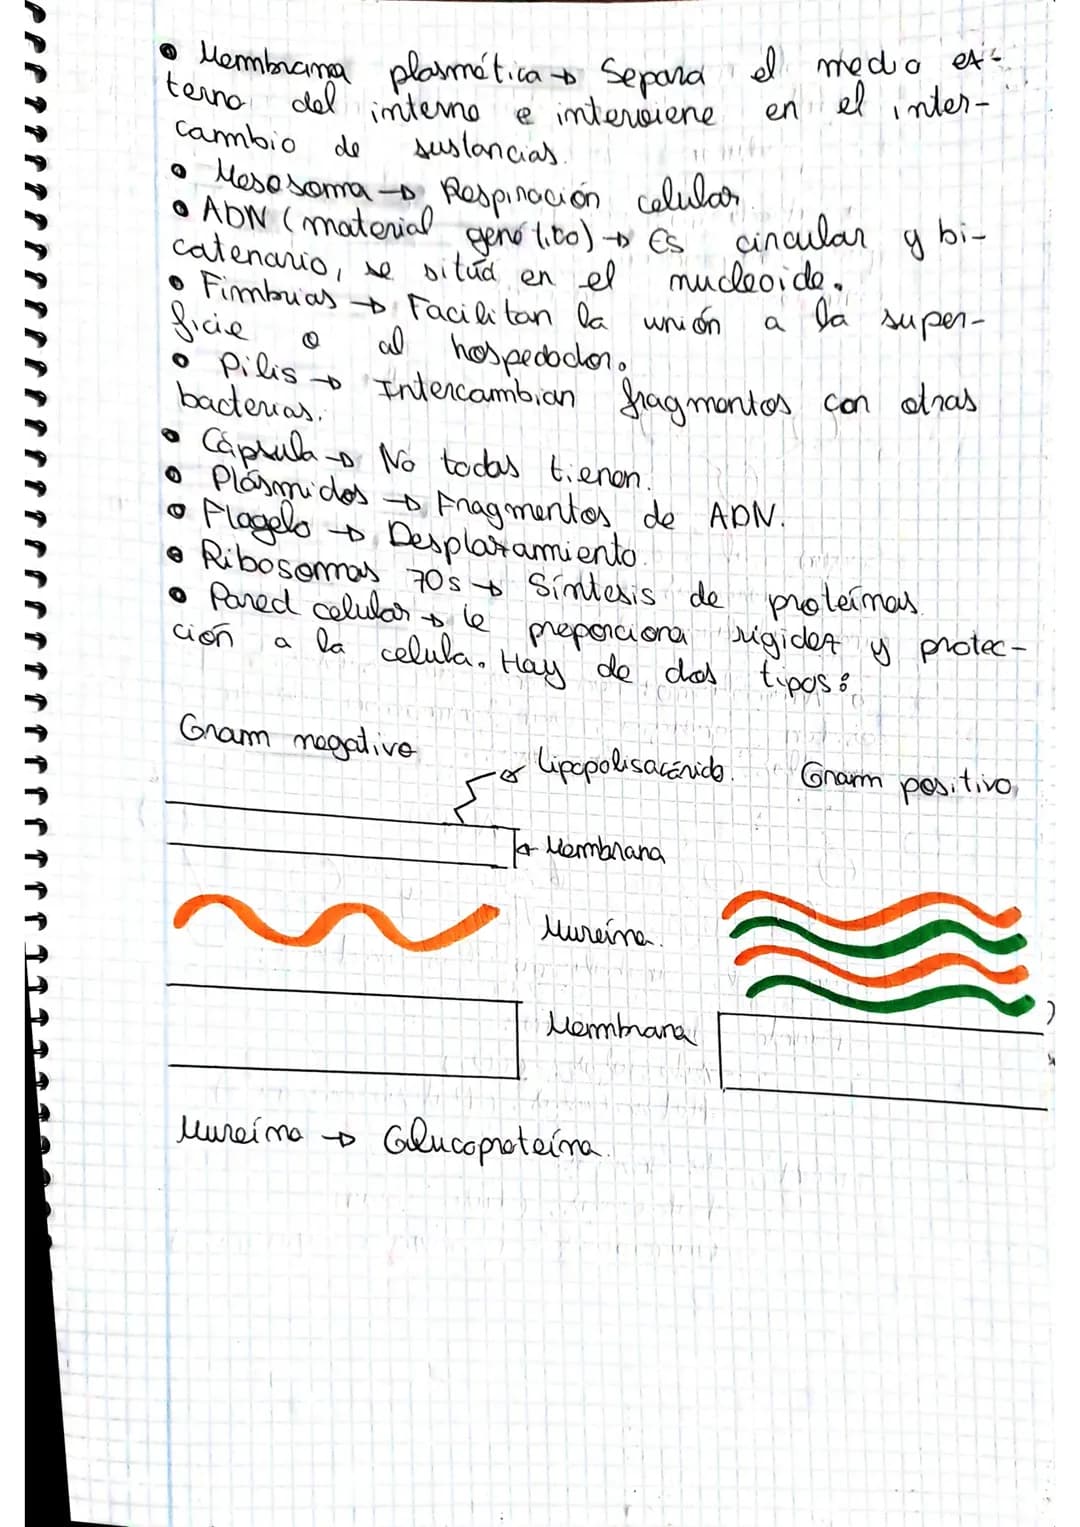 • Membrana plasmática → Separa el medio ex-
terno del interno e interviene en el inter-
cambio de sustancias.
• Mesosoma → Respiración celular
• ADN (material genético) → Es circular y bi-
catenario, se sitúa en el nucleoide.
• Fimbrias → Facilitan la unión a la super-
ficie o al hospedador.
• Pilis → Intercambian fragmentos con otras
bacterias.
• Cápsula → No todas tienen.
• Plásmidos → Fragmentos de ADN.
• Flagelo → Desplazamiento.
• Ribosomas 70s → Síntesis de proteínas.
• Pared celular → le proporciona rigidez y protec-
ción a la celula. Hay de dos tipos:
Gram negativo
Lipopolisacárido.
Gram positivo
Membrana
Mureína.
Membrana
Mureína → Glucoproteína.